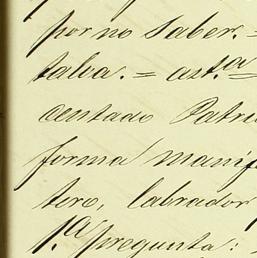 por no saber.=
talia.= ast.ta=
centado Patri
forma manif
tero, labrador
1.a pregunta: